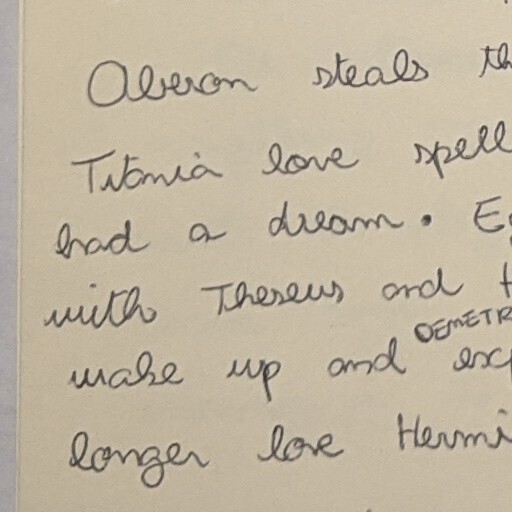 Oberon steals th
Titania love spell
had a dream. Eg
with Theseus and t
DEMETR
make up and exp
longer love Hermi